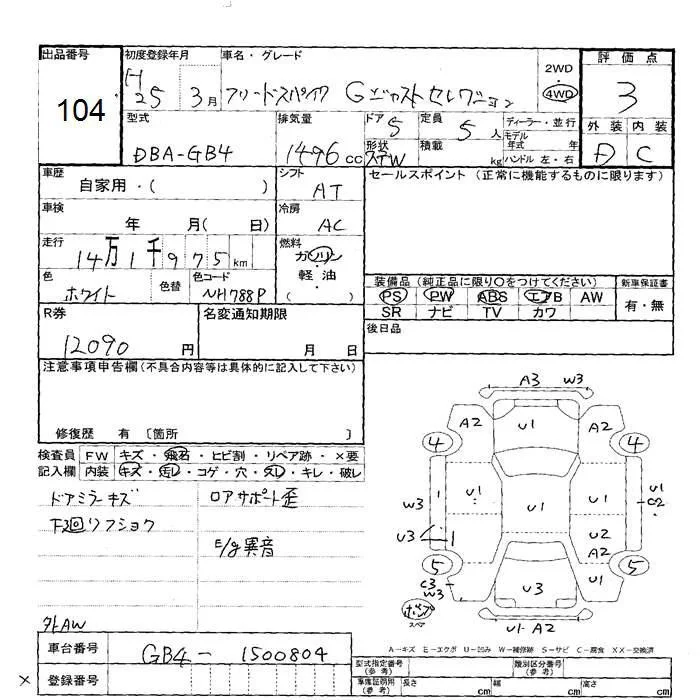 出品番号
104
初度登録年月
H25 3月
車名・グレード
フリードスパイク Gジャストセレクション
2WD
4WD
評価点
3
外装 内装
D C
型式
DBA-GB4
排気量
1496 cc
ドア 5
形状 STW
定員 5 人
積載 kg
ディーラー・並行
モデル年式 年
ハンドル 左・右
車歴
自家用・( )
シフト
AT
セールスポイント(正常に機能するものに限ります)
車検
年 月( 日)
冷房
AC
走行
14万1千975km
燃料
ガソリン
・
軽油
( )
色
ホワイト
色替
色コード
NH788P
装備品(純正品に限り○をつけてください)
PS PW ABS エアB AW
SR ナビ TV カワ
新車保証書
有・無
R券
12090 円
名変通知期限
月 日
後日品
注意事項申告欄(不具合内容等は具体的に記入して下さい)
修復歴 有 〔箇所 〕
検査員記入欄
FW キズ・飛石・ヒビ割・リペア跡・×要
内装 キズ・汚レ・コゲ・穴・スレ・キレ・破レ
ドアミラーキズ
下回リフショク
ロアサポート歪
E/g異音
外AW
A3 W3
A2 U1 A2
4 4
W3 1 U1 U1 U1 U1 C2
U3 1 U2
A2
5 5
C3 W3 U3 U1
スペア
U1-A2
A-キズ E-エクボ U-凹み W-補修跡 S-サビ C-腐食 XX-交換済
車台番号
GB4-1500804
登録番号
×
型式指定番号(参考)
類別区分番号(参考)
車庫証明用(参考) 長さ cm 幅 cm 高さ cm